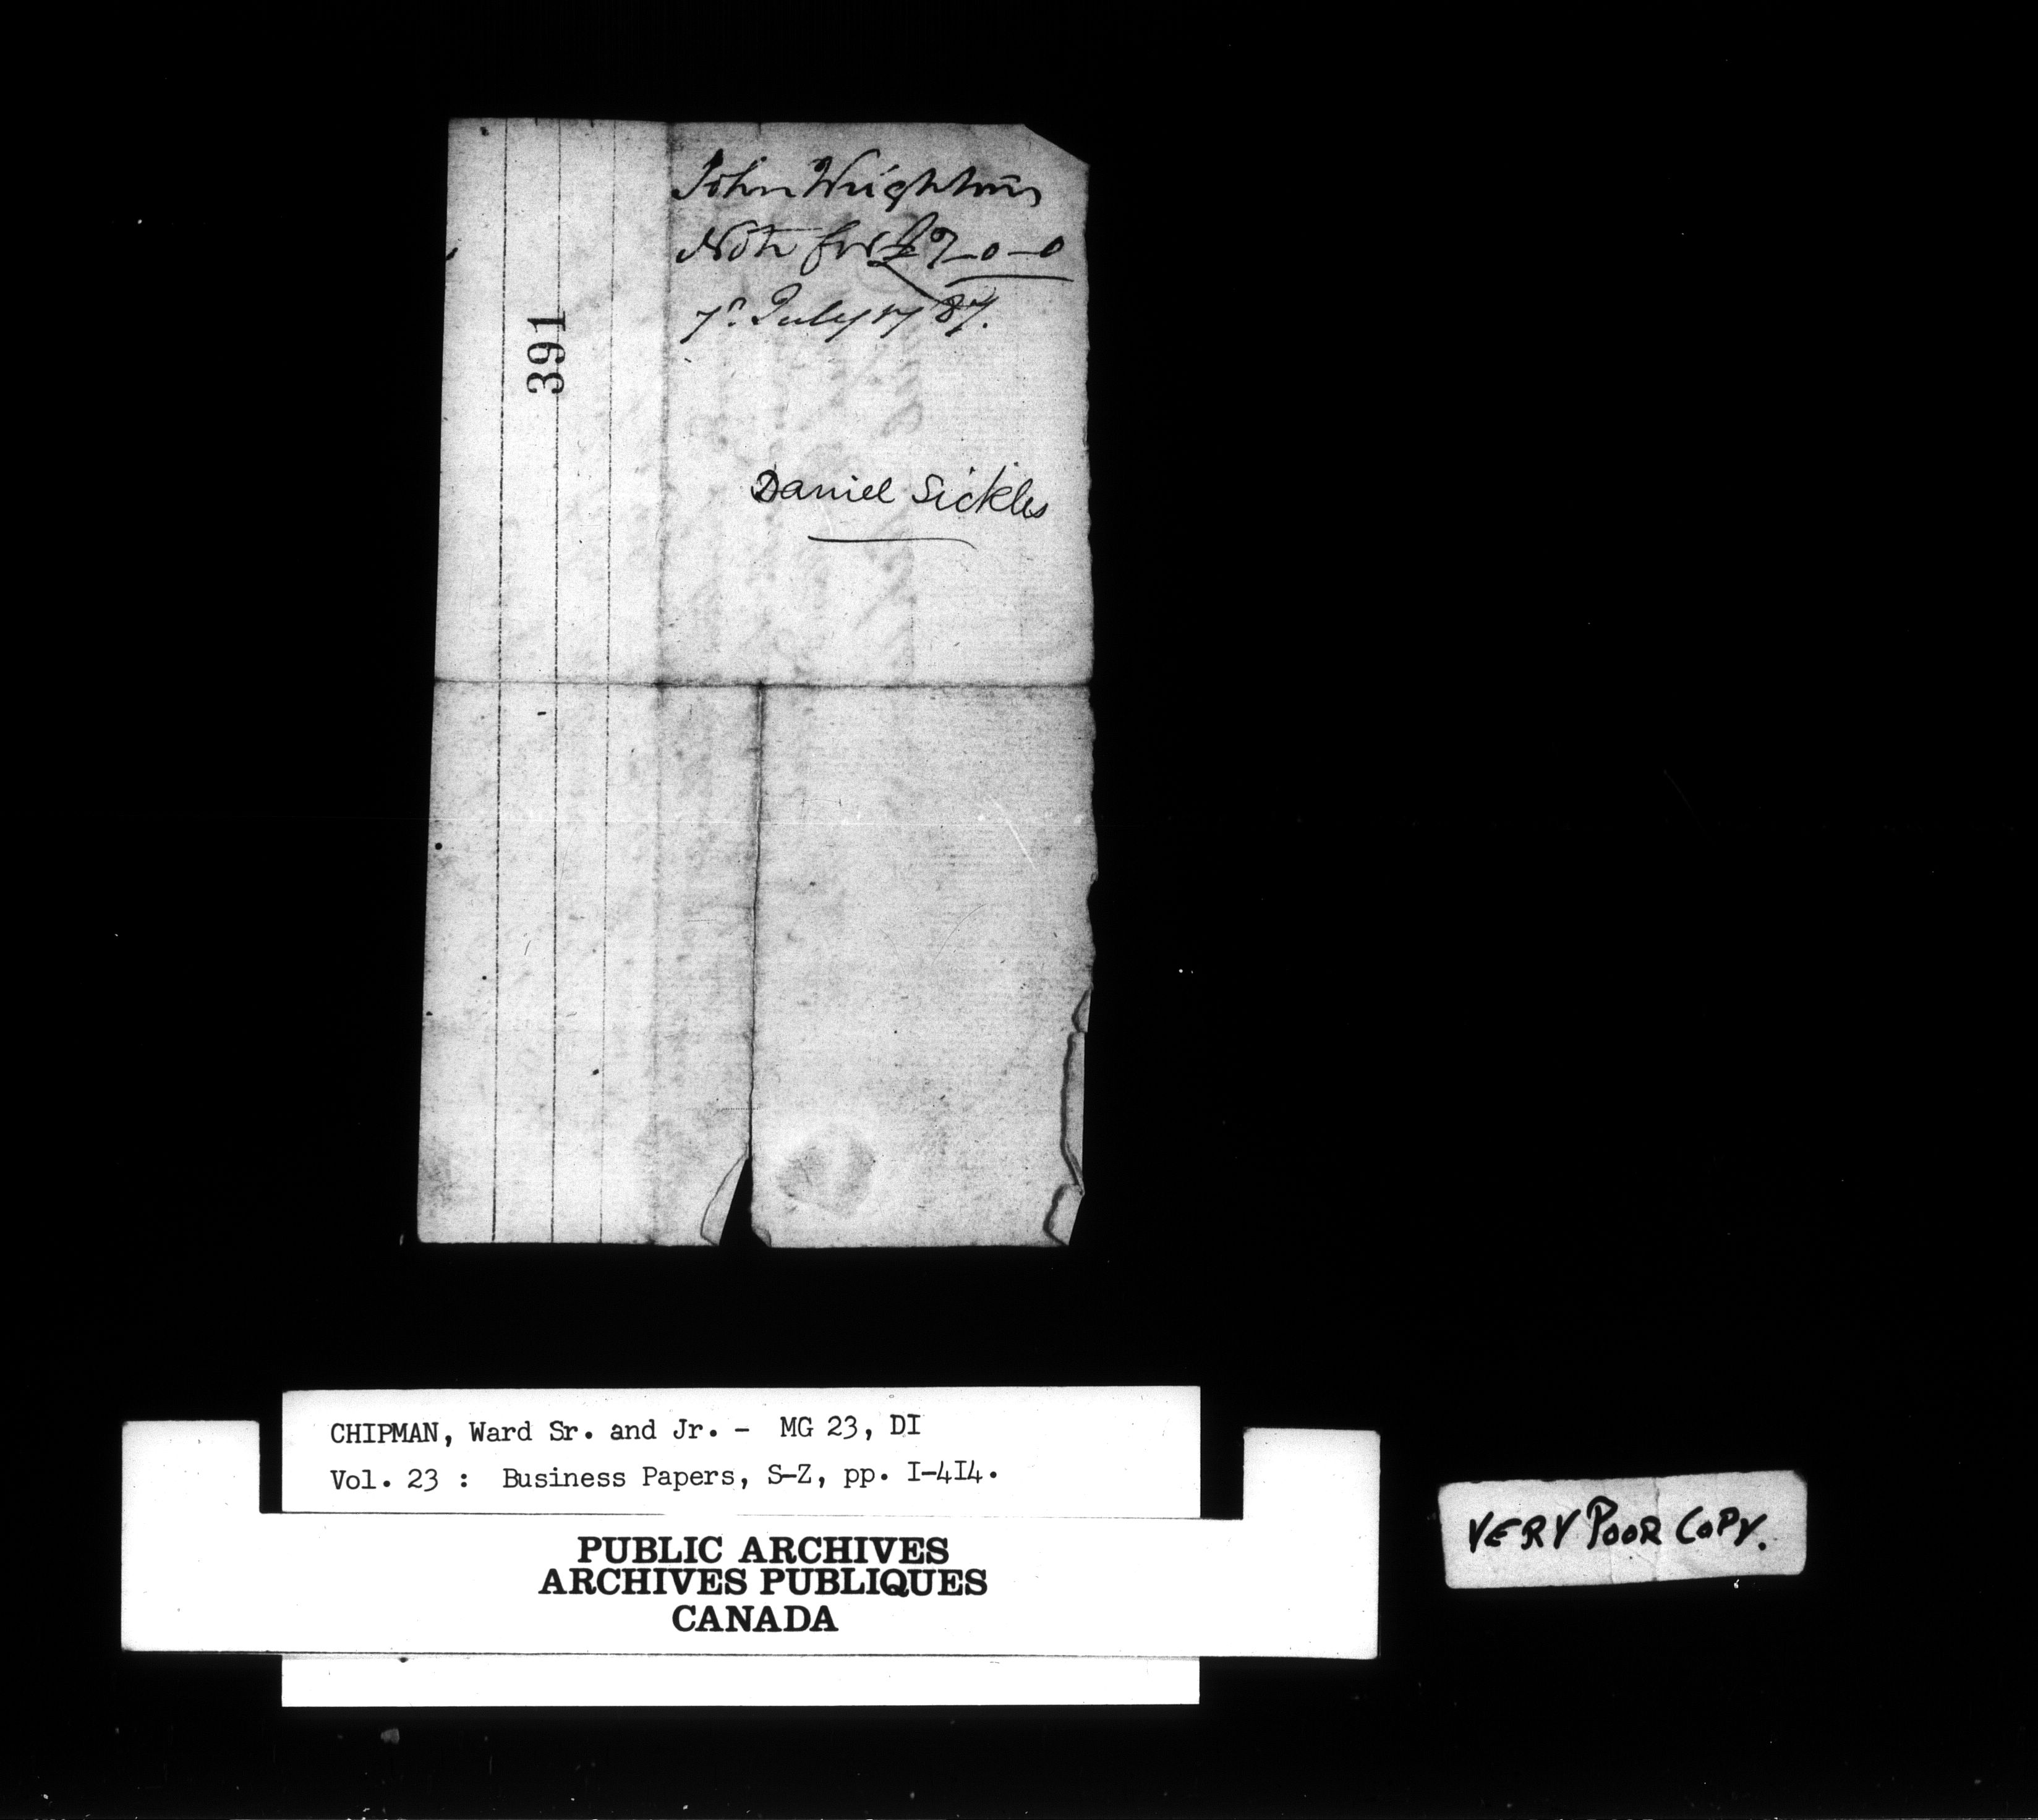 John Wrightmȳ
Note for £7–0–0
7th July 1787.
391
Daniel Sickles
CHIPMAN, Ward Sr. and Jr. - MG 23, DI
Vol. 23 : Business Papers, S-Z, pp. I-4I4.
PUBLIC ARCHIVES
ARCHIVES PUBLIQUES
CANADA
VERY POOR COPY.